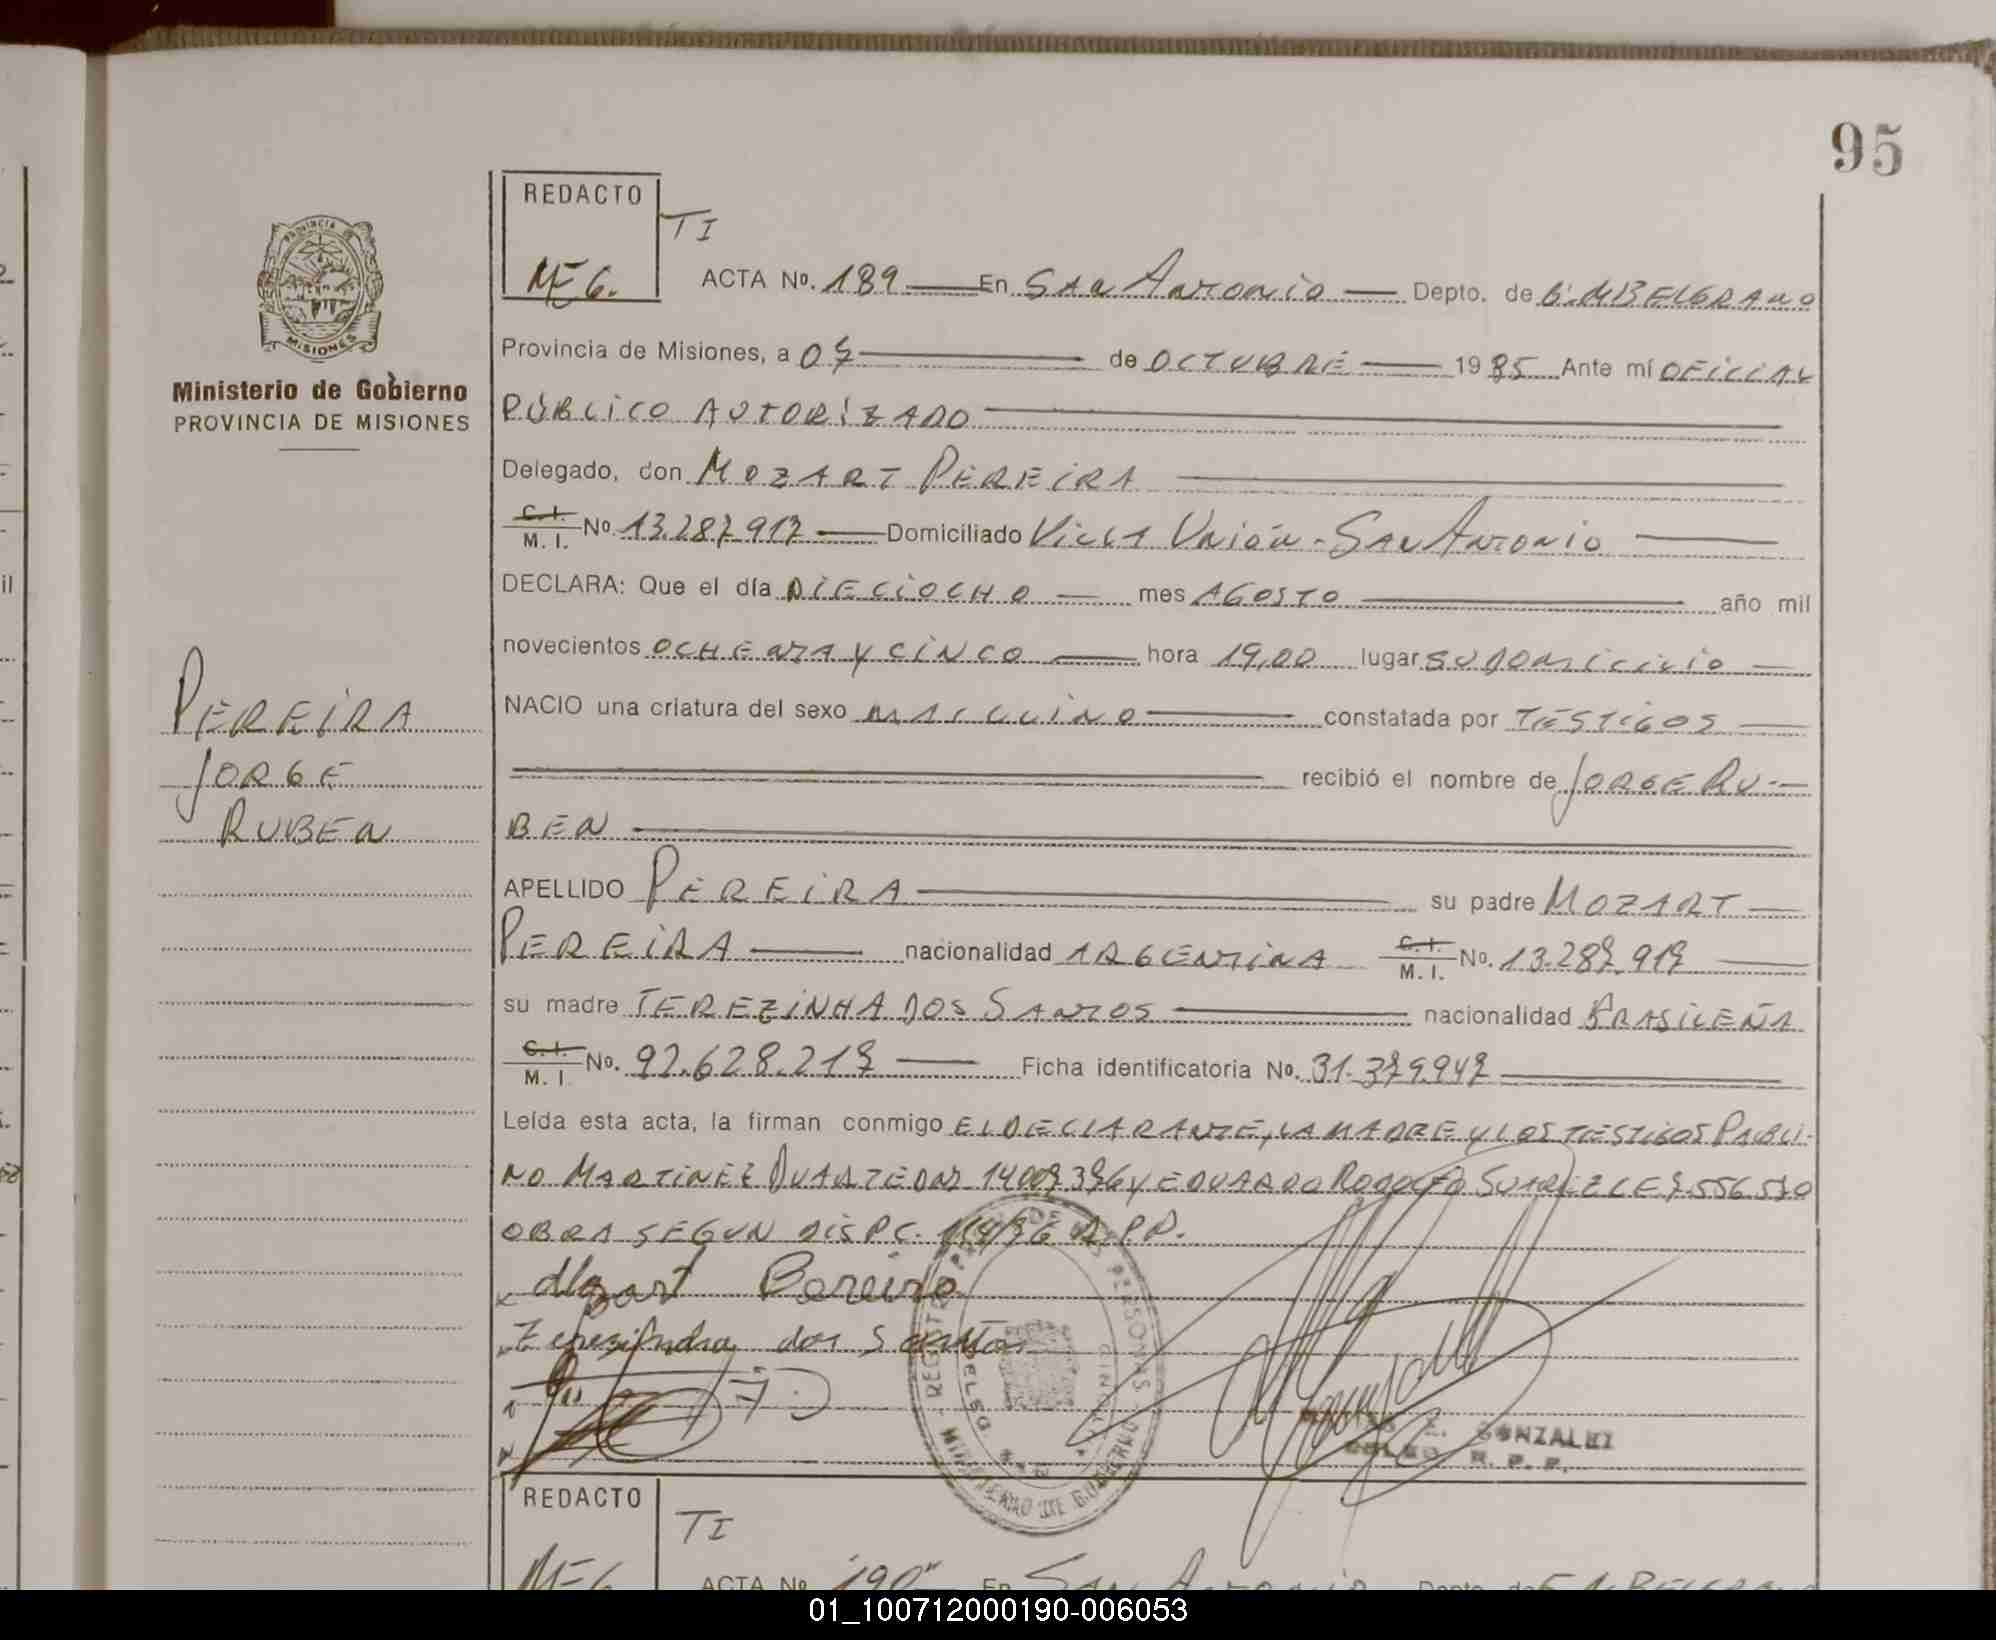 95
REDACTO
TI
MEG.
ACTA Nº. 189 En San Antonio Depto. de G. M BELGRANO
PROVINCIA DE MISIONES
Ministerio de Gobierno
PROVINCIA DE MISIONES
Provincia de Misiones, a 07 de OCTUBRE 1985 Ante mí OFICIAL
PÚBLICO AUTORIZADO
Delegado, don MOZART PEREIRA
C. I. M. I. Nº. 13.287.917 Domiciliado Villa Unión - San Antonio
DECLARA: Que el día DIECIOCHO mes AGOSTO año mil
novecientos OCHENTA Y CINCO hora 19,00 lugar SU DOMICILIO
NACIO una criatura del sexo MASCULINO constatada por TESTIGOS
recibió el nombre de JORGE RU-
BEN
PEREIRA
JORGE
RUBEN
APELLIDO PEREIRA su padre MOZART
PEREIRA nacionalidad ARGENTINA C. I. M. I. Nº. 13.287.917
su madre TEREZINHA DOS SANTOS nacionalidad BRASILEÑA
C. I. M. I. Nº. 92.628.217 Ficha identificatoria Nº. 31.379.947
Leída esta acta, la firman conmigo EL DECLARANTE, LA MADRE Y LOS TESTIGOS PAULI-
NO MARTINEZ DUARTE DNI 14.007.376 Y EDUARDO RODOLFO SUAREZ LE 7.556.570
OBRA SEGUN DISP C. 114/76 R.P.P.
Mozart Pereira
Terezinha dos Santos
REGISTRO PROV. DE LAS PERSONAS
MINISTERIO DE GOBIERNO
E. GONZALEZ
R. P. P.
REDACTO
TI
MEG
ACTA Nº 190 En San Antonio Depto. de G. M BELGRANO
01_100712000190-006053